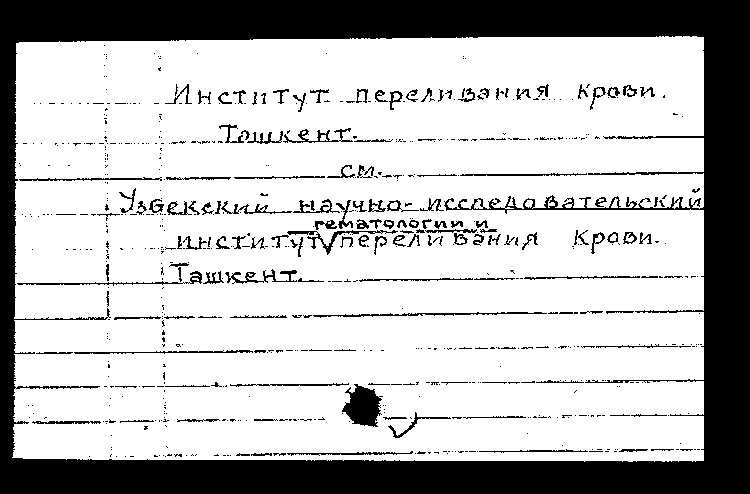 Институт переливания крови.
Ташкент.
см.
Узбекский научно-исследовательский
гематологии и
институт переливания крови.
Ташкент.